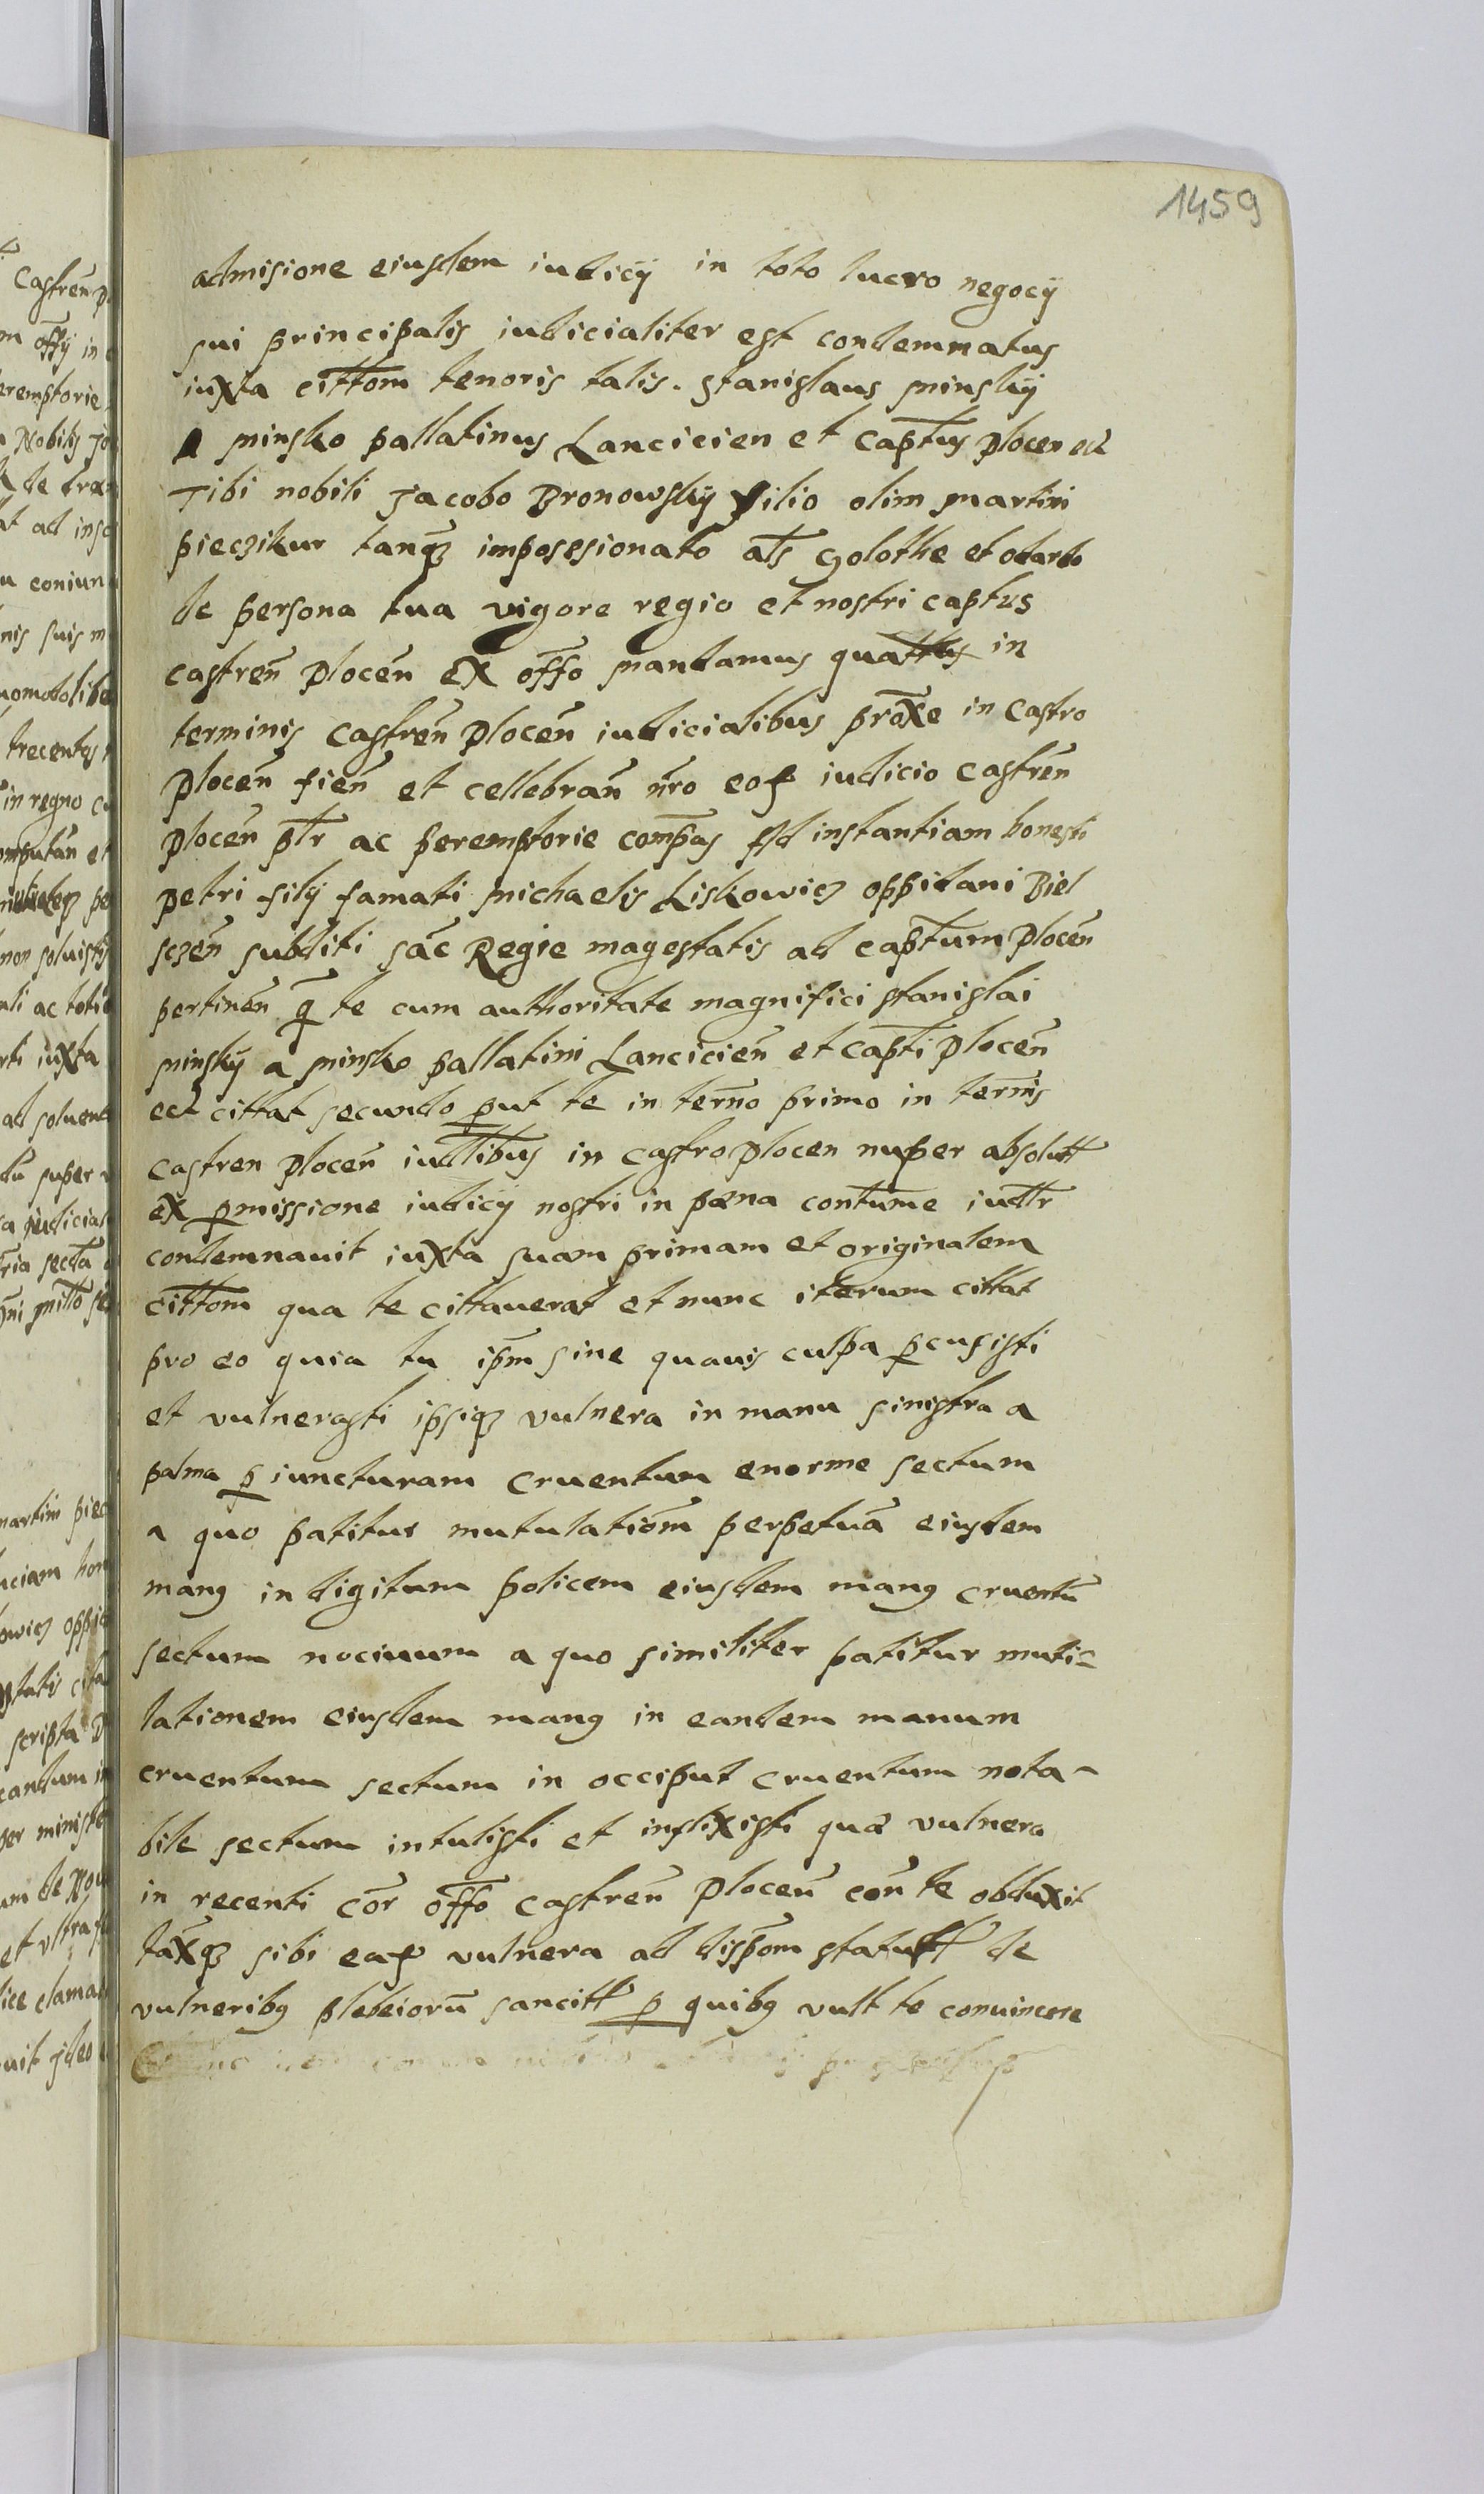 1459
admisione eiusdem iudicÿ in toto lucro negocÿ
sui principalis iudicialiter est condemnatus
iuxta cittōm tenoris talis. Stanislaus Minskÿ
a Minsko pallatinus Lancicien et Captūs Plocen ect
Tibi nobili Jacobo Bronowskÿ filio olim Martini
Pieczikur tanqȝ impossesionato als Golothe et
de persona tua vigore regio et nostri captus
castreñ Ploceñ ex offo mandamus quattus in
terminis Castreñ Ploceñ iudicialibus proxe in Castro
Ploceñ fieñ et cellebrañ nro iudicio Castreñ
Ploceñ ptr ac peremptorie compas ad instantiam honesti
Petri filÿ famati Michaelis Liskowicȝ oppidani Biel
sceñ subditi sac Regie magestatis ad captum Ploceñ
pertineñ q te cum authoritate magnifici Stanislai
Minskÿ a Minsko pallatini Lancicieñ et capti Ploceñ
ect cittat secundo put te in terno primo in ternis
castren Ploceñ iudlibus in castro Plocen nuper absolutt
ex pmissione iudicÿ nostri in pœna contume iudtr
condemnauit iuxta suam primam et originalem
cittom qua te cittauerat et nunc iterum cittat
pro eo quia tu ipm sine quauis culpa pcusisti
et vulnerasti ipsiqȝ vulnera in manu sinistra a
palma p iuncturam cruentum enorme sectum
a quo patitur mutulatiom perpetuā eiusdem
manꝰ in digitum policem eiusdem manꝰ cruentū
sectum nociuum a quo similiter patitur muti=
lationem eiusdem manꝰ in eandem manum
cruentum sectum in occiput cruentum nota-
bile sectum intulisti et inflixisti quæ vulnera
in recenti cor offo castreñ Ploceñ con te obduxit
taxqȝ sibi vulnera ad dispom statutt de
vulneribꝰ plebeiorū sancitt p quibꝰ vult te conuincere